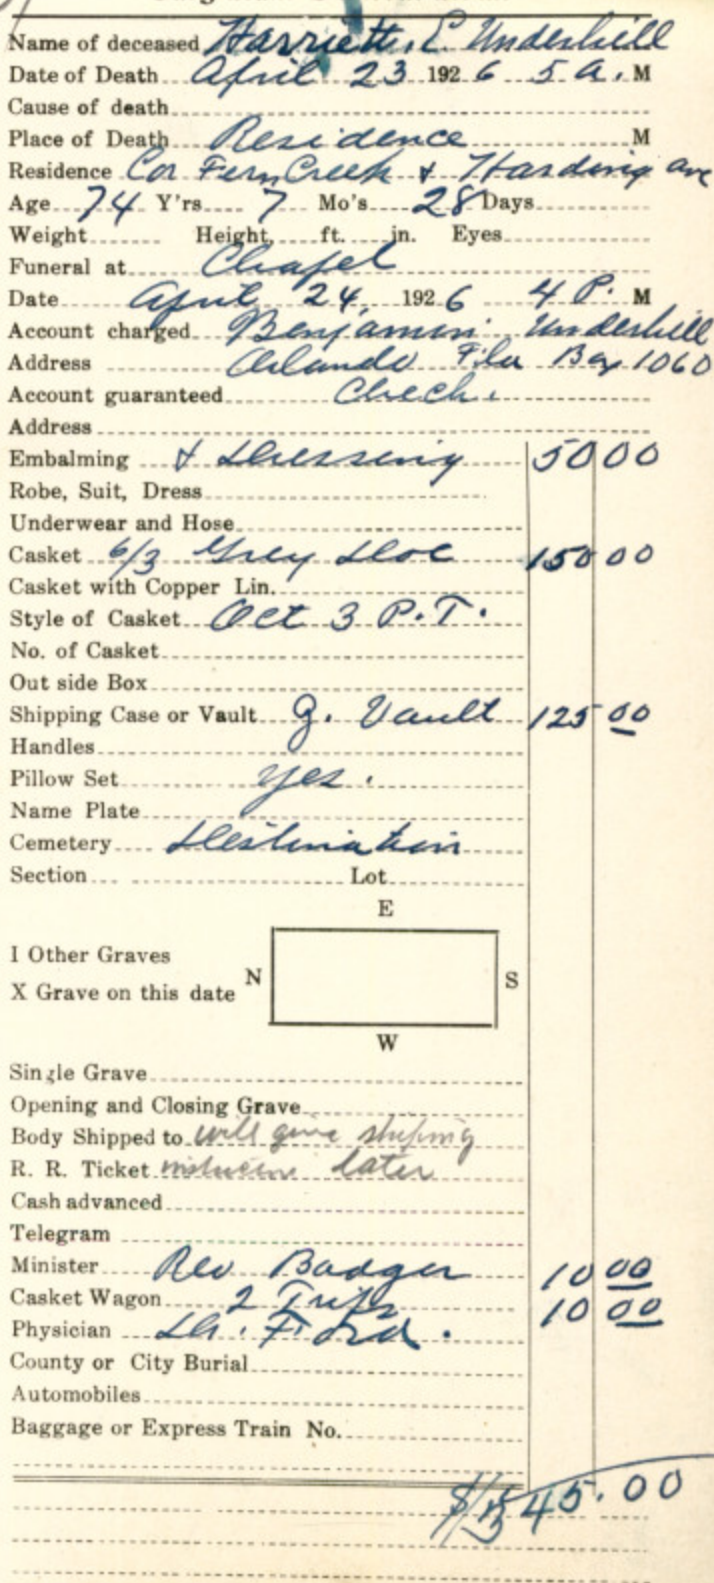 Name of deceased Harriett. E. Underhill
Date of Death April 23 1926 5 a. M
Cause of death
Place of Death Residence M
Residence Cor Fern Creek & Harding ave
Age 74 Y'rs 7 Mo's 28 Days
Weight Height ft. in. Eyes
Funeral at Chapel
Date April 24, 1926 4 P. M
Account charged Benjamin Underhill
Address Orlando Fla Box 1060
Account guaranteed Check.
Address
Embalming & Dressing 50 00
Robe, Suit, Dress
Underwear and Hose
Casket 6/3 Grey Doe 150 00
Casket with Copper Lin.
Style of Casket Oct 3 P.T.
No. of Casket
Out side Box
Shipping Case or Vault G. Vault 125 00
Handles
Pillow Set yes.
Name Plate
Cemetery Destination
Section Lot
E
I Other Graves
N S
X Grave on this date
W
Single Grave
Opening and Closing Grave
Body Shipped to will give shiping
R. R. Ticket later
Cash advanced
Telegram
Minister Rev Badger 10 00
Casket Wagon 2 Trips 10 00
Physician Dr. Ford.
County or City Burial
Automobiles
Baggage or Express Train No.
45.00